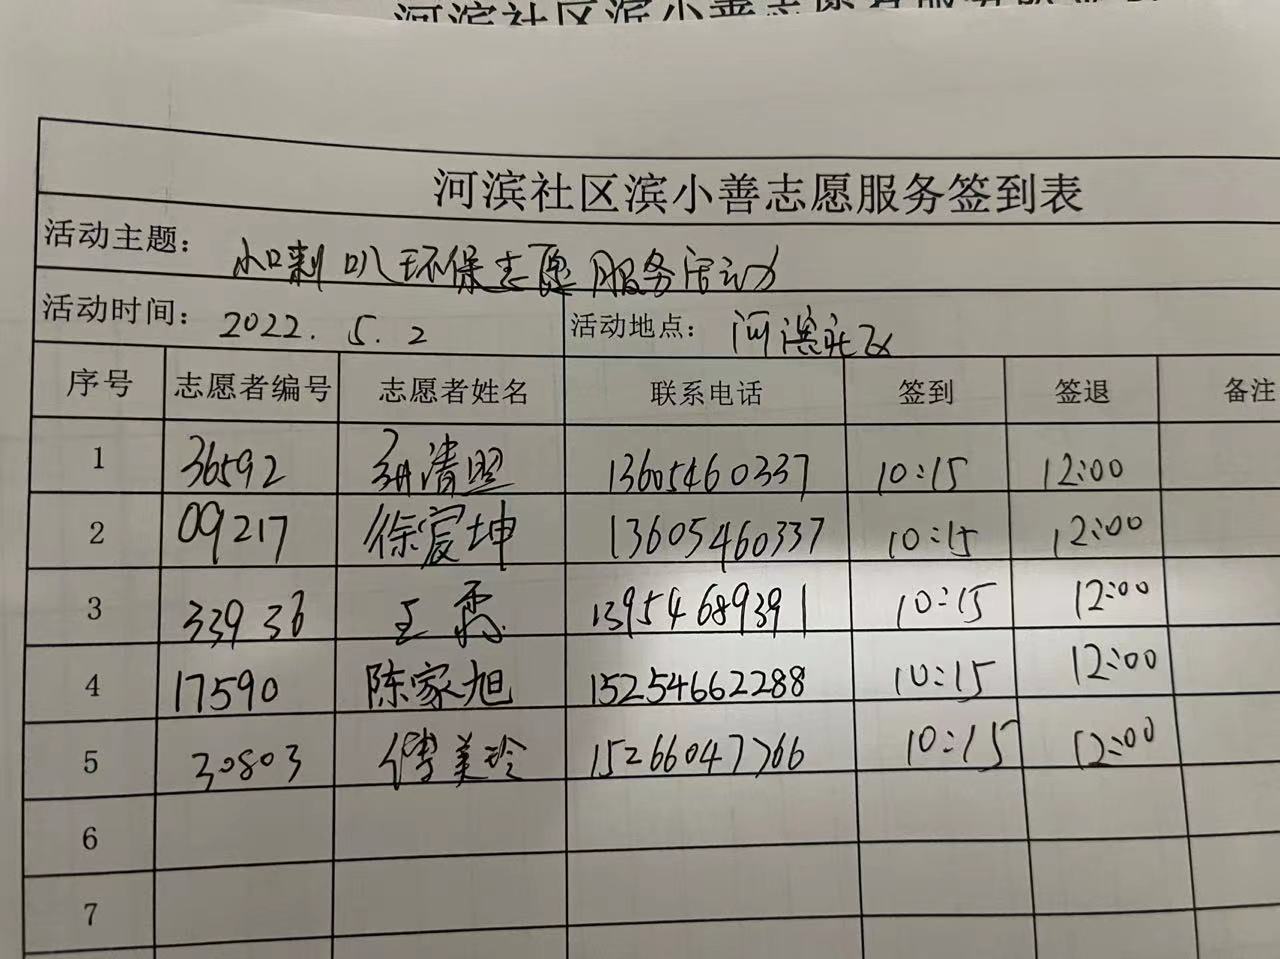 河滨社区滨小善志愿服务签到表
活动主题: 小喇叭环保志愿服务活动
活动时间: 2022.5.2 活动地点: 河滨社区
序号 志愿者编号 志愿者姓名 联系电话 签到 签退 备注
1 36592 清照 13605460337 10:15 12:00
2 09217 徐爱坤 13605460337 10:15 12:00
3 33936 王 13954689391 10:15 12:00
4 17590 陈家旭 15254662288 10:15 12:00
5 30803 傅美玲 15266047766 10:15 12:00
6
7